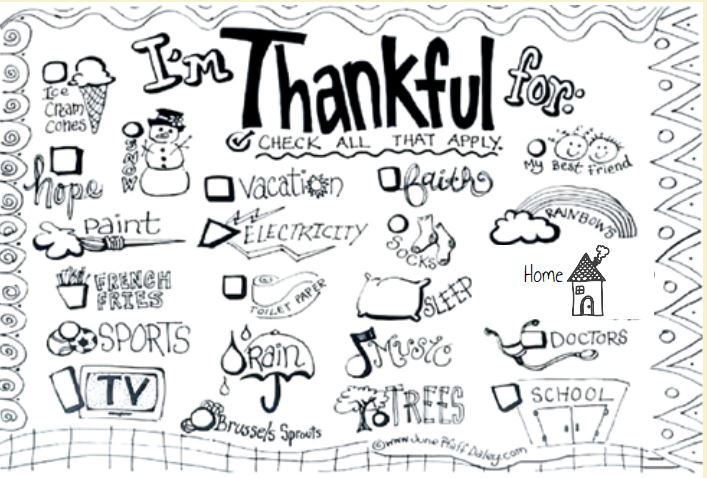 I'm Thankful for:
CHECK ALL THAT APPLY.
Ice
Cream
Cones
SNOW
My Best Friend
hope
vacation
faith
paint
ELECTRICITY
SOCKS
RAINBOWS
FRENCH
FRIES
TOILET PAPER
SLEEP
Home
SPORTS
Rain
Music
DOCTORS
TV
Brussels Sprouts
TREES
SCHOOL
©www.JunePfaffDaley.com